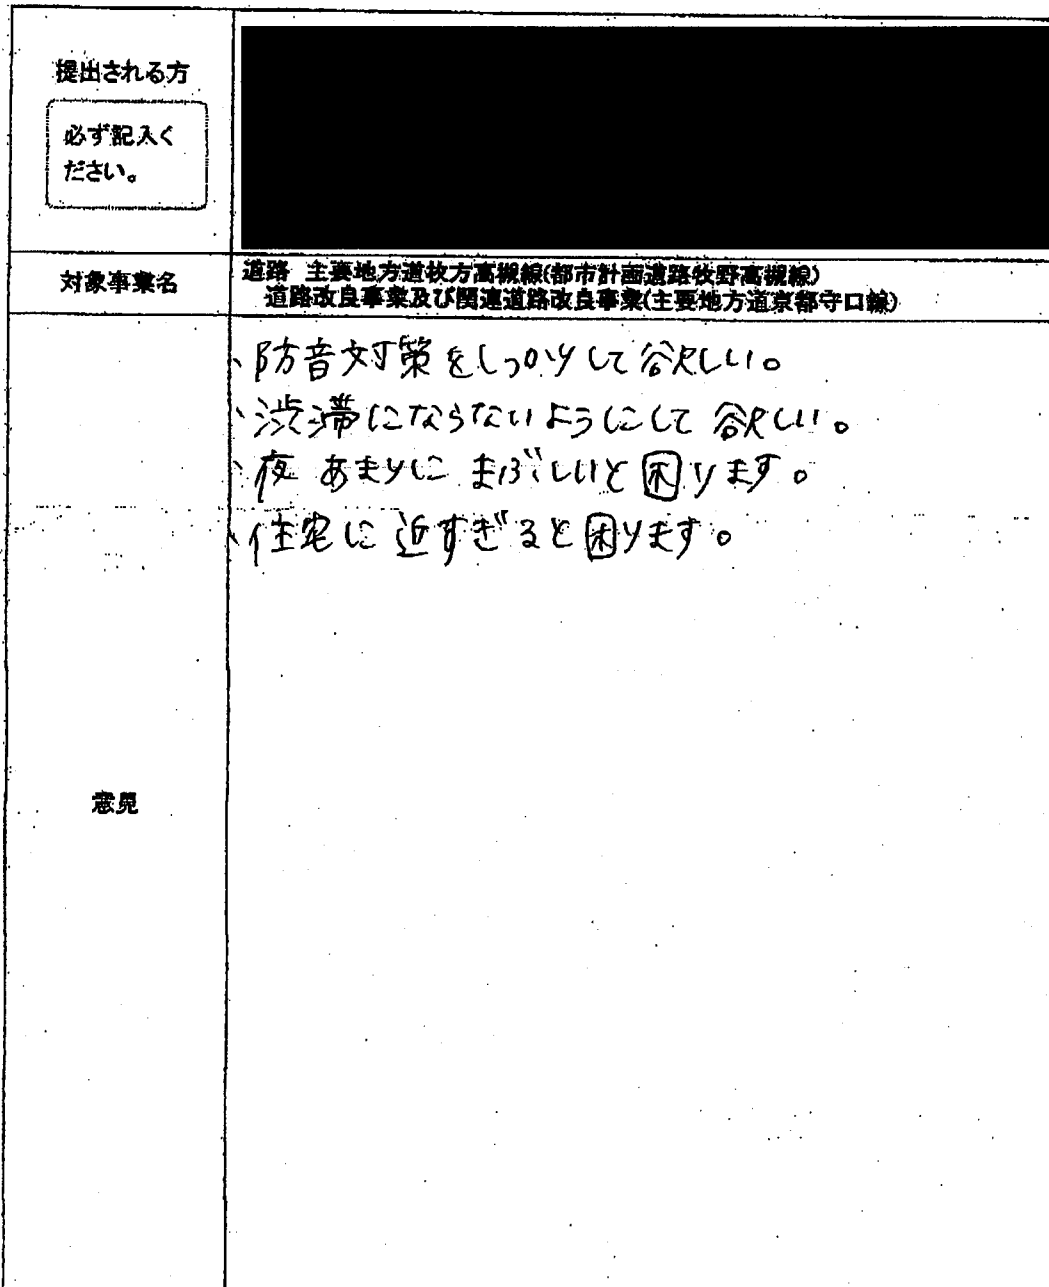 提出される方
必ず記入く
ださい。
対象事業名
道路 主要地方道枚方高槻線(都市計画道路牧野高槻線)
道路改良事業及び関連道路改良事業(主要地方道京都守口線)
・防音対策をしっかりして欲しい。
・渋滞にならないようにして欲しい。
・夜あまりにまぶしいと困ります。
・住宅に近すぎると困ります。
意見